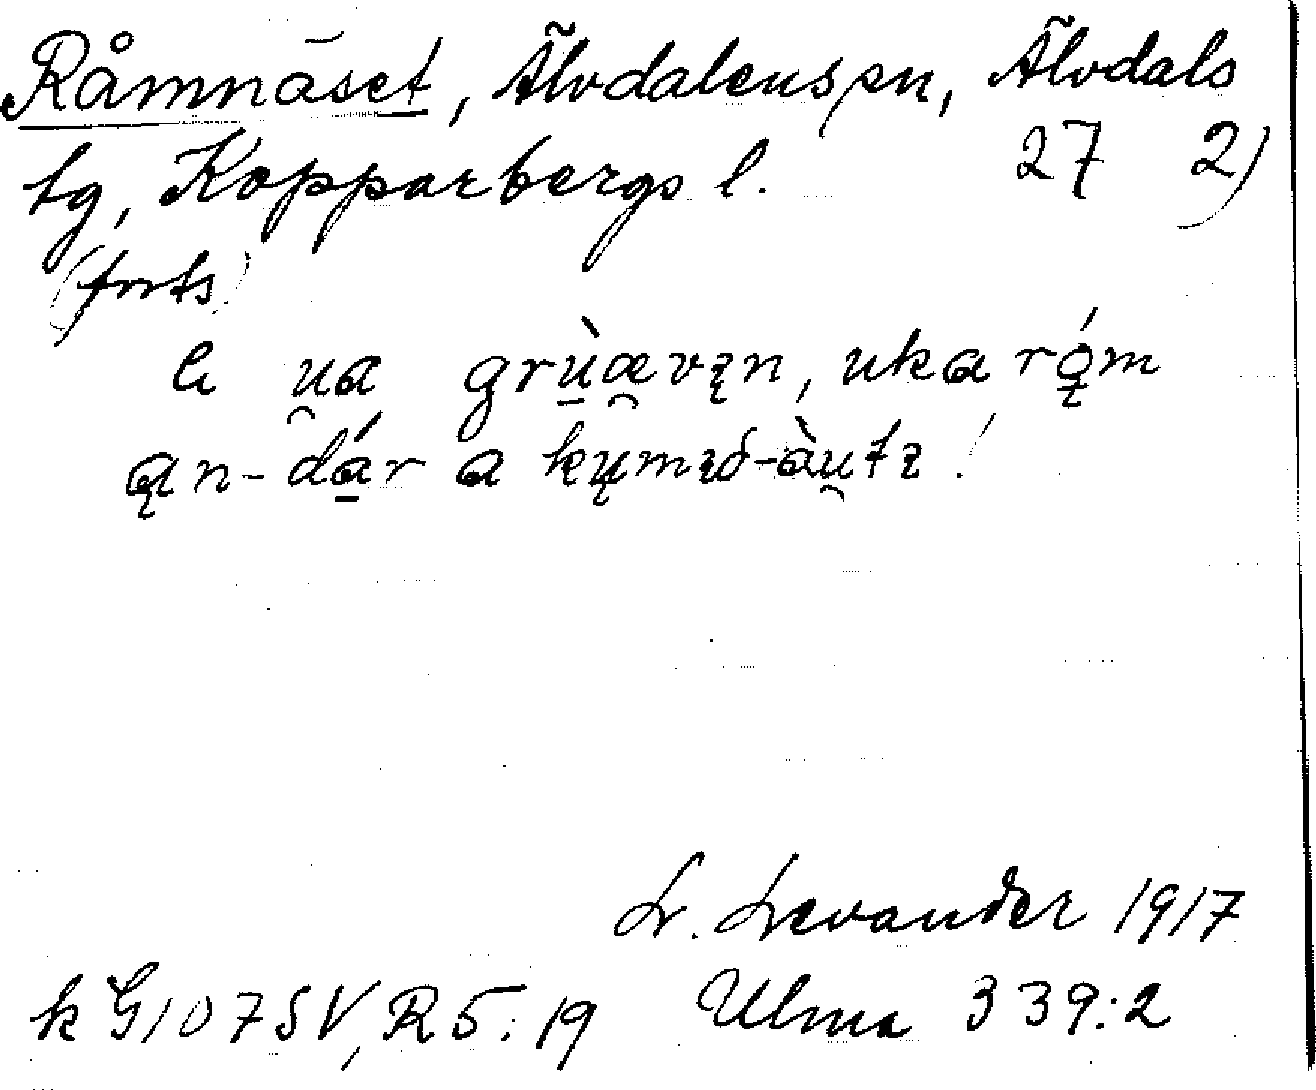 Råmnäset, Älvdalens sn, Älvdals
tg, Kopparbergs l. 27 2)
(forts)
e u̯a grùæ̯vın, uka rǫ́m
ąn-dár a kųmıð-àu̯tı!
L. Levander 1917
k G107SV, R5:19 Ulma 339:2